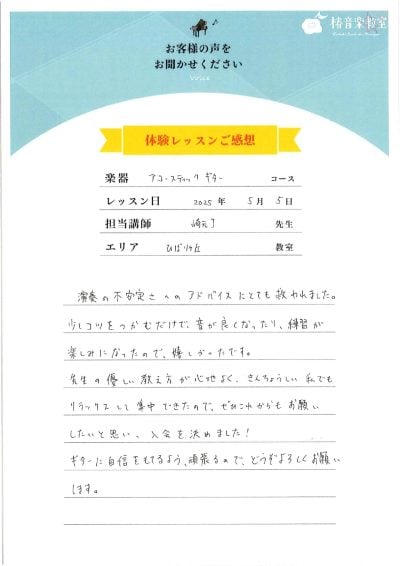 椿音楽教室
お客様の声を
お聞かせください
VOICE
体験レッスンご感想
楽器 アコースティックギター コース
レッスン日 2025年 5月 5日
担当講師 先生
エリア ひばりヶ丘 教室
演奏の不安定さへのアドバイスにとても救われました。
少しコツをつかむだけで、音が良くなったり、練習が
楽しみになったので、嬉しかったです。
先生の優しい教え方が心地よく、きんちょうしい私でも
リラックスして集中できたので、ぜひこれからもお願い
したいと思い、入会を決めました!
ギターに自信をもてるよう、頑張るので、どうぞよろしくお願い
します。